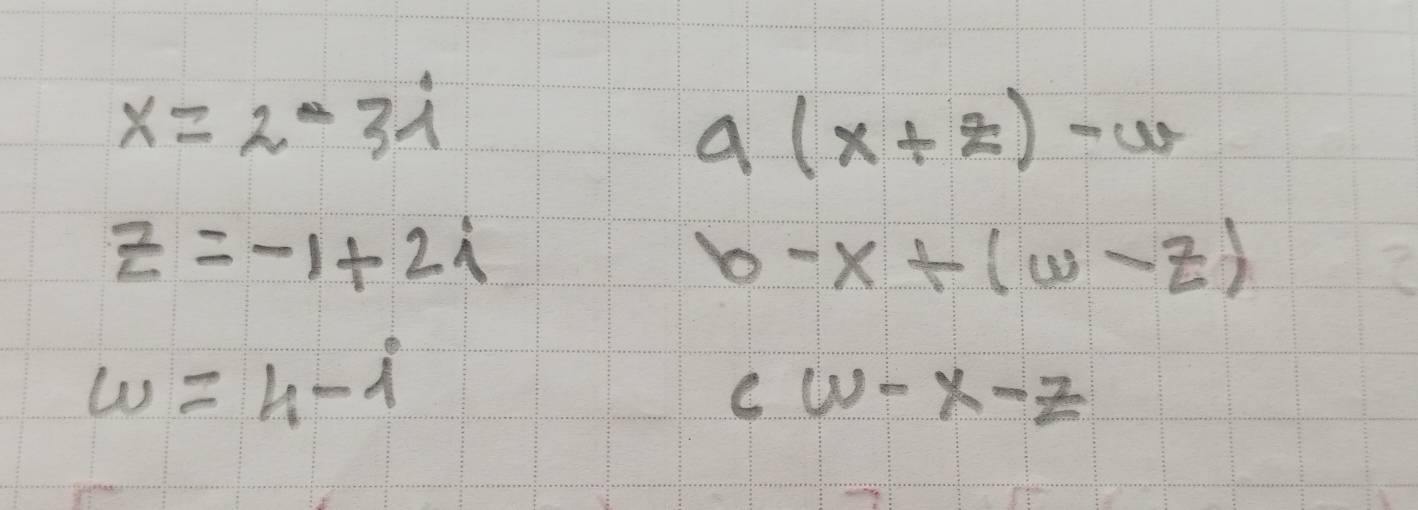 x = 2 - 3i
z = -1 + 2i
w = 4 - i
a (x + z) - w
b -x + (w - z)
c w - x - z